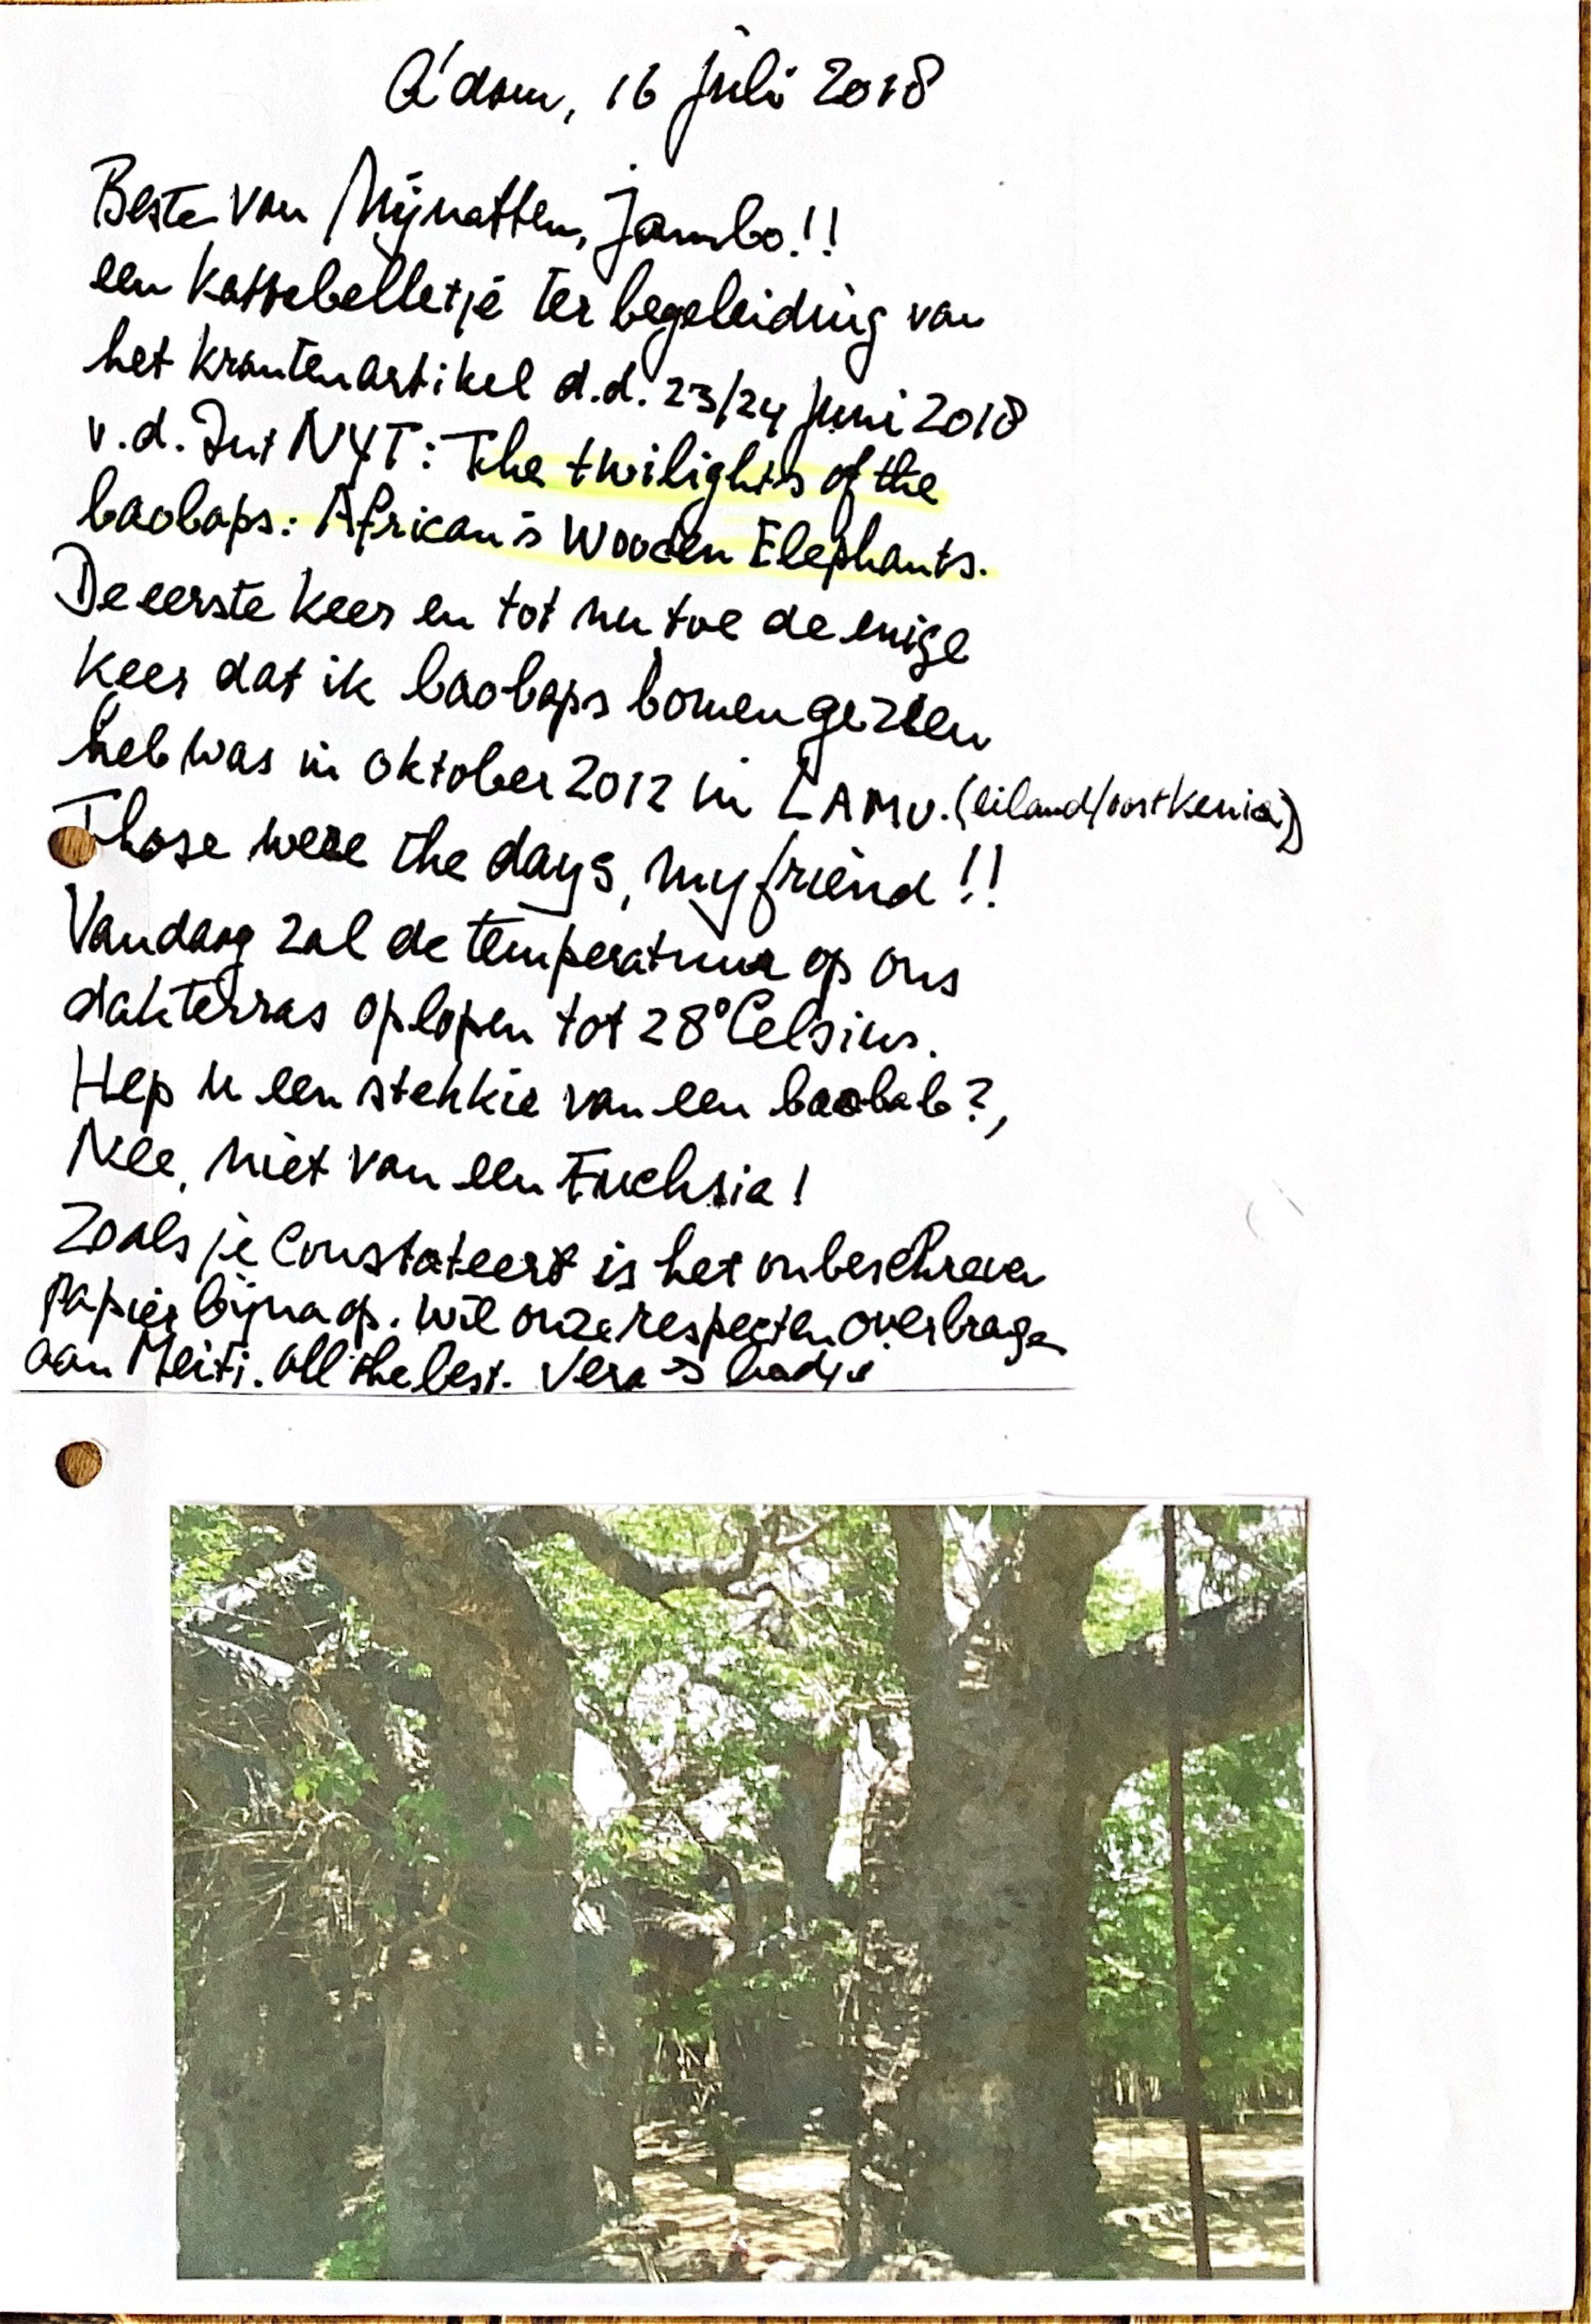 A'dam, 16 juli 2018
Beste van Mijnatten, Jambo!!
een kattebelletje ter begeleiding van
het krantenartikel d.d. 23/24 juni 2018
v.d. Int NYT: The twilights of the
baobaps: African's Wooden Elephants.
De eerste keer en tot nu toe de enige
keer dat ik baobaps bomen gezien
heb was in oktober 2012 in LAMU. (eiland/oostkenia)
Those were the days, my friend!!
Vandaag zal de temperatuur op ons
dakterras oplopen tot 28° Celsius.
Hep u een stekkie van een baobab?,
Nee, niet van een Fuchsia!
Zoals je constateert is het onbeschreven
papier bijna op. Wil onze respecten overbrage
aan Meiti. All the best. Vera